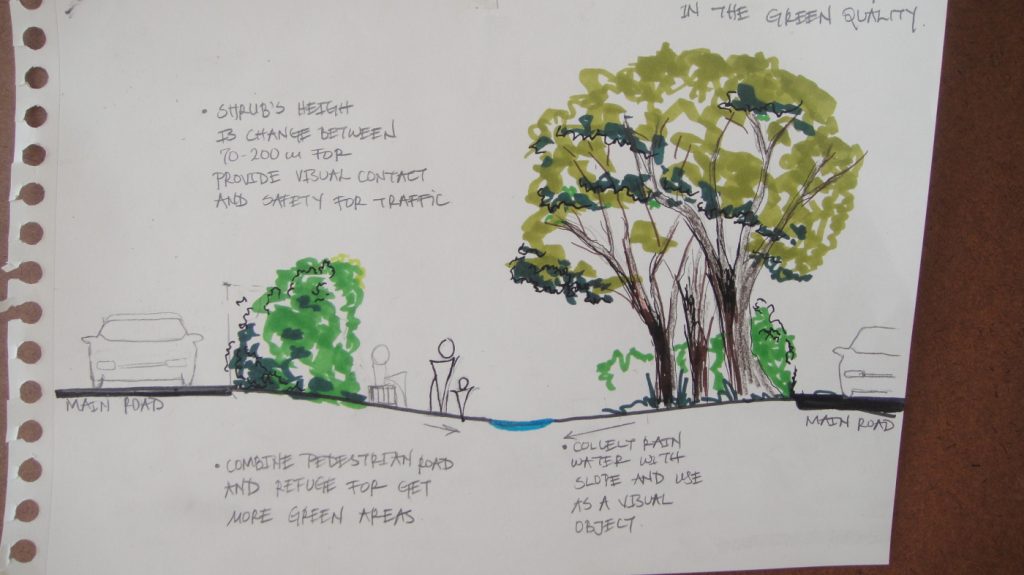 IN THE GREEN QUALITY.
• SHRUB'S HEIGH
IS CHANGE BETWEEN
70-200 cm FOR
PROVIDE VISUAL CONTACT
AND SAFETY FOR TRAFFIC
MAIN ROAD
MAIN ROAD
• COMBINE PEDESTRIAN ROAD
AND REFUGE FOR GET
MORE GREEN AREAS.
• COLLELT RAIN
WATER WITH
SLOPE AND USE
AS A VISUAL
OBJECT.